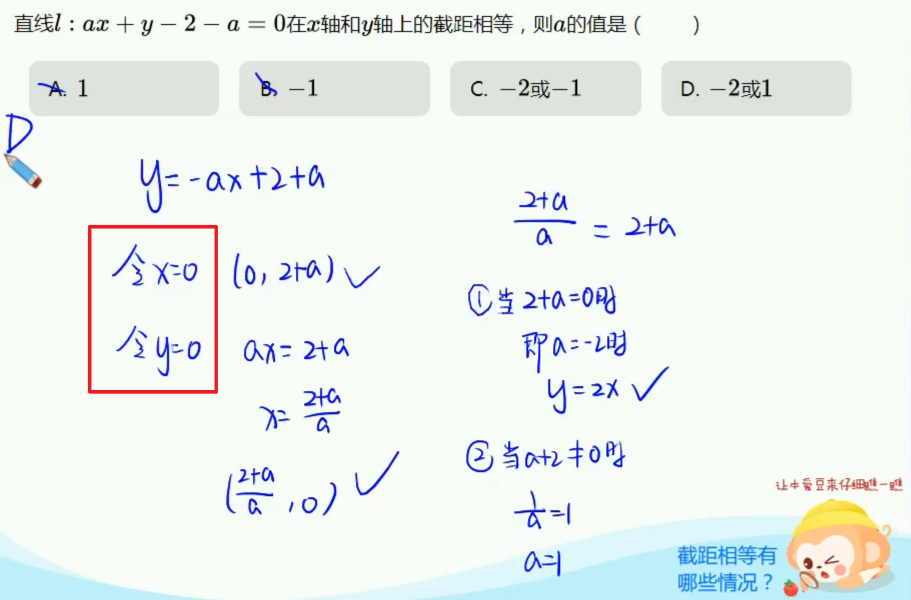 直线l : ax + y − 2 − a = 0在x轴和y轴上的截距相等，则a的值是（　　）
A. 1
B. −1
C. −2或−1
D. −2或1
D
y=-ax+2+a
令x=0 (0, 2+a) ✓
令y=0 ax=2+a
x=(2+a)/a
((2+a)/a, 0) ✓
(2+a)/a = 2+a
①当2+a=0时
即a=-2时
y=2x ✓
②当a+2≠0时
1/a=1
a=1
让牛爱豆来仔细瞧一瞧
截距相等有
哪些情况？